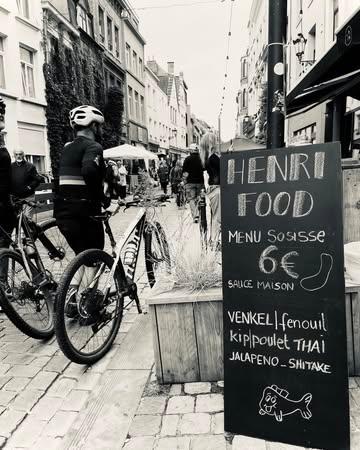 HENRI
FOOD
MENU SOSISSE
6€
SAUCE MAISON
VENKEL/fenouil
kip/poulet THAÏ
JALAPENO - SHITAKE